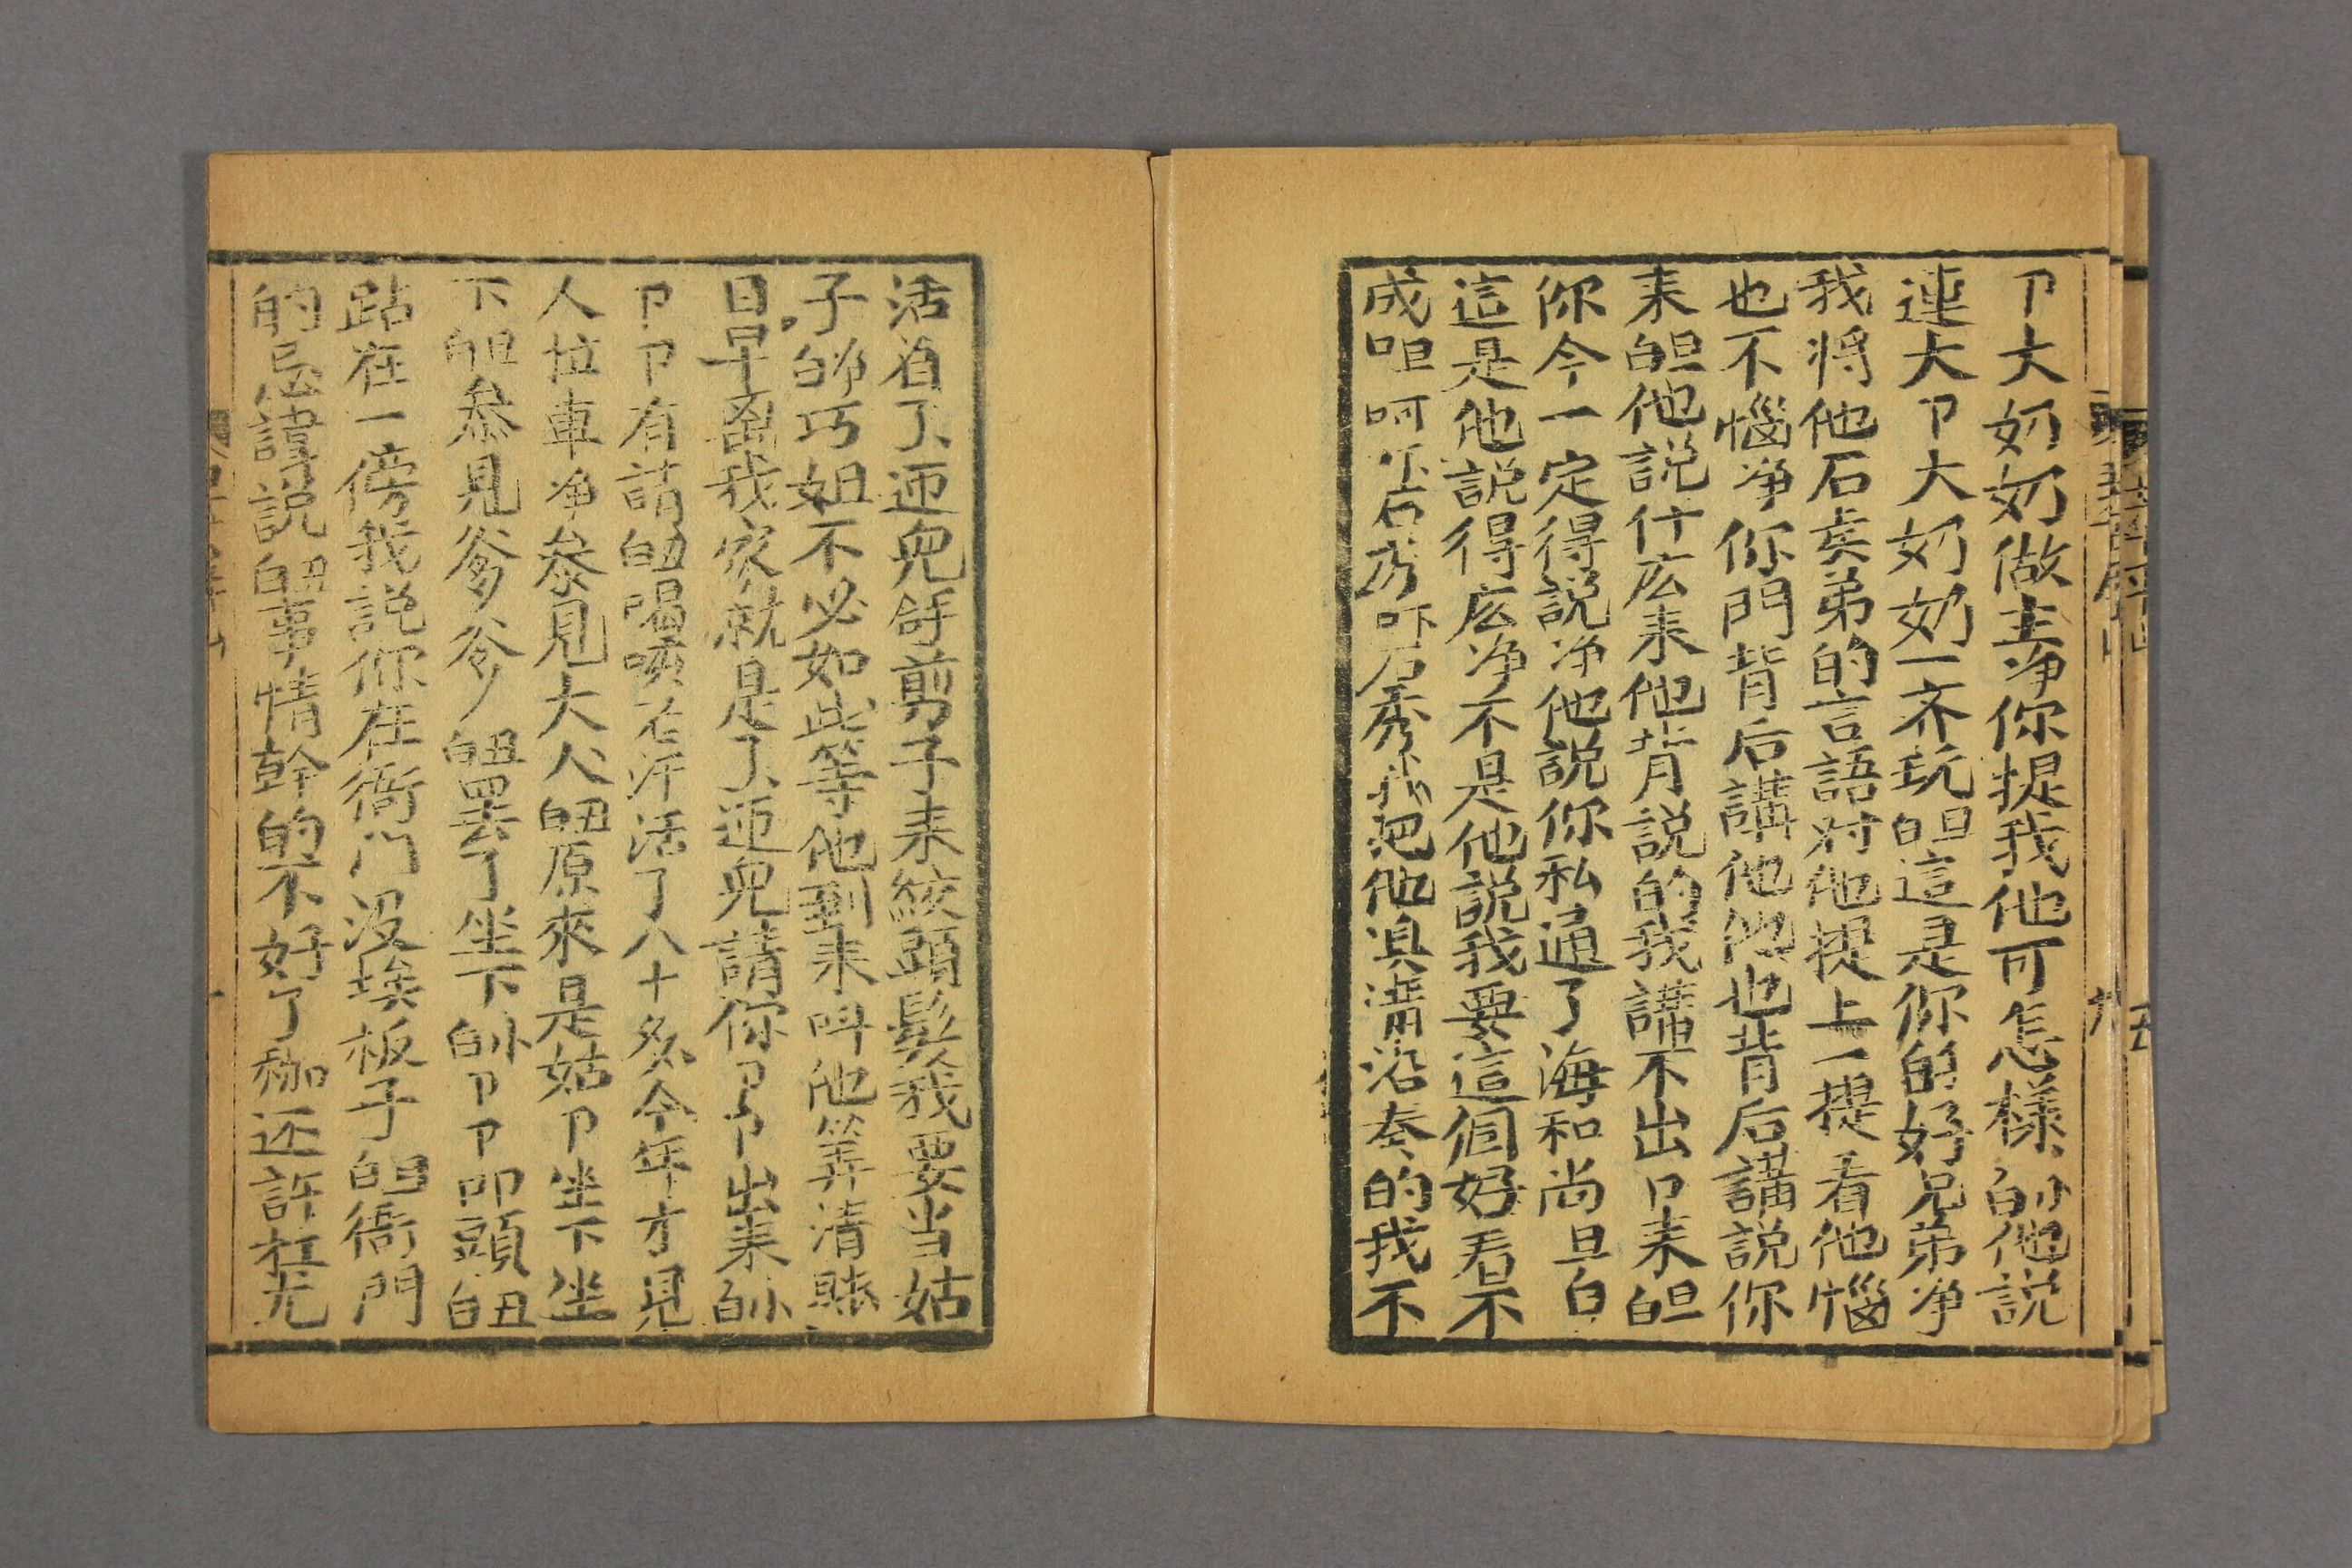 卩大奶奶做主净你提我他可怎樣白小他説
連大卩大奶奶一齐玩白旦這是你的好兄弟净
我将他石矣弟的言語对他提上一提看他惱
也不惱净你門背后講他他也背后講説你
耒白旦他説什庅耒他背説的我講不出口耒白旦
你今一定得説净他説你私通了海和尚旦白
這是他説得庅净不是他説我要這個好看不
成呾呵石秀吓石秀我把他淸沿奏的我不
活着了迊兒舒剪子耒絞頭髮我要当姑
子白净巧姐不必如此等他到耒呌他筭清賬
日早离我家就是了迊兒請你卩卩出耒白小
卩卩有請白丑喝石汗活了八十多今年才見
人拉車净叅見大人白丑原來是姑卩坐下坐
下白旦叅見爹爹白丑罢了坐下白小卩卩叩頭白丑
跕在一傍我説你在衙门沒挨板子白旦衙門
的忌諱説白丑事情幹的不好了枷还許扛尤